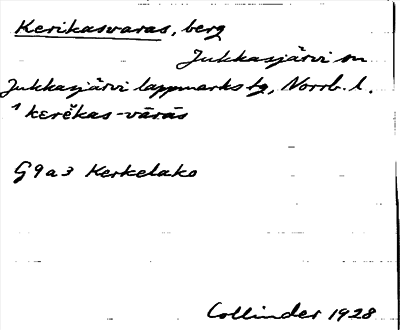 Kerikasvaras, berg
Jukkasjärvi sn
Jukkasjärvi lappmarks tg, Norrb. l.
¹ kerĕkas-vārās
G9a3 Kerkelako
Collinder 1928